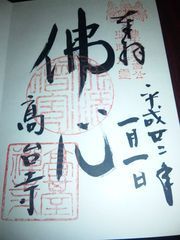 奉拝
平成廿二年
一月一日
佛心
高台寺